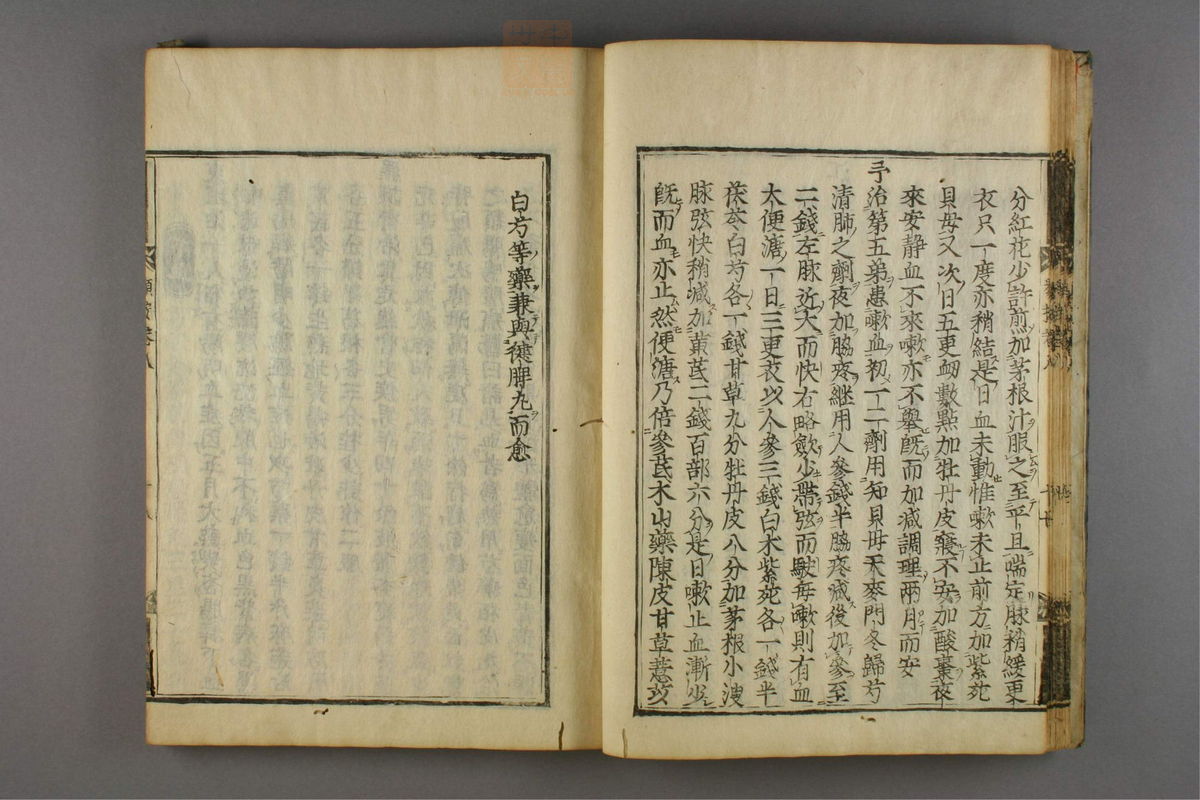 分紅花少許煎加茅根汁服之至平旦喘定脉稍緩更
衣只一度亦稍結是日血未動惟嗽未止前方加紫菀
貝母又次日五更衂數點加牡丹皮寢不安加酸棗夜
來安静血不來嗽亦不舉既而加减調理兩月而安
予治第五弟患嗽血初一二劑用知貝母天麥門冬歸芍
清肺之劑夜加脇疼継用人參錢半脇疼减後加參至
二錢左脉近大而快右略歛少帶弦而駛毎嗽則有血
大便溏一日三更衣以人參三錢白术紫菀各一錢半
茯苓白芍各一錢甘草九分牡丹皮八分加茅根小溲
脉弦快稍减加黄茋二錢百部六分是日嗽止血漸少
既而血亦止然便溏乃倍參茋术山藥陳皮甘草薏苡
白芍等藥兼與健脾丸而愈